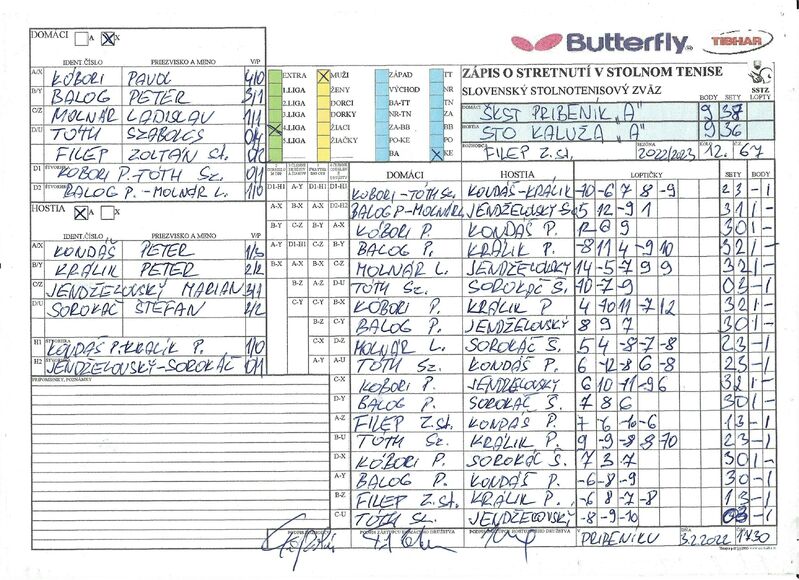 DOMÁCI A X
IDENT.ČÍSLO PRIEZVISKO A MENO V/P
A/X KÓBORI PAVOL 4/0
B/Y BALOG PETER 3/1
C/Z MOLNÁR LADISLAV 1/1
D/U TÓTH SZABOLCS 0/4
FILEP ZOLTÁN st. 0/2
D1 KÓBORI P.-TÓTH Sz. 0/1
D2 BALOG P.-MOLNÁR L. 1/0
HOSTIA A X
IDENT.ČÍSLO PRIEZVISKO A MENO V/P
A/X KONDÁŠ PETER 1/3
B/Y KRÁLIK PETER 2/2
C/Z JENDŽELOVSKÝ MARIÁN 3/1
D/U SOROKÁČ ŠTEFAN 2/2
H1 ŠTVORHRA KONDÁŠ P.-KRÁLIK P. 1/0
H2 ŠTVORHRA JENDŽELOVSKÝ-SOROKÁČ 0/1
PRIPOMIENKY, POZNÁMKY
EXTRA MUŽI ZÁPAD TT
I.LIGA ŽENY VÝCHOD NR
2.LIGA DORCI BA-TT TN
3.LIGA DORKY NR-TN ZA
4.LIGA ŽIACI ZA-BB BB
5.LIGA ŽIAČKY PO-KE PO
BA KE
Butterfly TIBHAR
ZÁPIS O STRETNUTÍ V STOLNOM TENISE
SLOVENSKÝ STOLNOTENISOVÝ ZVÄZ SSTZ
BODY SETY LOPTY
DOMÁCI ŠKST PRIBENÍK "A" 9 37
HOSTIA STO KALUŽA "A" 9 36
FILEP Z.st. SEZÓNA 2022/2023 KOLO 12. Č. 67
DOMÁCI HOSTIA LOPTIČKY SETY BODY
D1-H1 KÓBORI-TÓTH Sz. KONDÁŠ-KRÁLIK -10 -6 7 8 -9 2 3 -1
D2-H2 BALOG P-MOLNÁR L JENDŽELOVSKÝ S. 5 12 -9 1 3 1 1-
KÓBORI P. KONDÁŠ P. 3 0 1-
BALOG P. KRÁLIK P. -8 11 4 -9 10 3 2 1-
MOLNÁR L. JENDŽELOVSKÝ 14 -5 -7 9 9 3 2 1-
TÓTH Sz. SOROKÁČ Š. -10 -7 -9 0 3 -1
KÓBORI P. KRÁLIK P 4 -10 11 -7 12 3 2 1-
BALOG P. JENDŽELOVSKÝ 8 9 7 3 0 1-
MOLNÁR L. SOROKÁČ Š. 5 4 -8 -7 -8 2 3 -1
TÓTH Sz. KONDÁŠ P. 6 -12 -8 6 -8 2 3 -1
C-X KÓBORI P. JENDŽELOVSKÝ 6 10 -11 -9 6 3 2 1-
D-Y BALOG P. SOROKÁČ Š. 7 8 6 3 0 1-
A-Z FILEP Z.st. KONDÁŠ P. 7 -6 -10 -6 1 3 -1
B-U TÓTH Sz. KRÁLIK P. 9 -9 -8 8 -10 2 3 -1
D-X KÓBORI P. SOROKÁČ Š. 7 3 7 3 0 1-
A-Y BALOG P. KONDÁŠ P. -6 -8 -9
B-Z FILEP Z.st. KRÁLIK P. -6 8 -7 -8 1 3 -1
C-U TÓTH Sz. JENDŽELOVSKÝ -8 -9 -10 0 3 -1
V PRIBENÍKU DŇA 3.2.2022